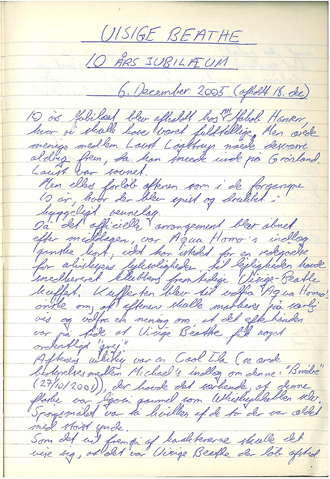 VISIGE BEATHE
10 ÅRS JUBILÆUM
6. December 2005 (afholdt 18. dec)
10 års jubilæet blev afholdt hos Jakob Hansen,
hvor vi skulle have været fuldtallige. Men ærede
menige medlem Laust Løgstrup nåede desværre
aldrig frem, da han sneede inde på Grønland.
Laust var savnet.
Men ellers forløb aftenen som i de forgangne
10 år, hvor der blev spist og drukket i
hyggeligt vennelag.
Da det officielle arrangement blev åbnet
efter middagen, var Aqua Homo's indlæg
ganske kort, idet han
for whiskyens
medbragt klubbens fremtidige Visige-Beathe
kuffert. Kufferten blev til voffor Aqua Homo's
ønske om, at aftenen skulle markeres på værdig
vis og udfra en mening om, at det efterhånden
var på tide at Visige Beathe fik noget
ordentligt "grej".
Aftenens whisky var en Caol Ila (se ærede
bestyrelsesmedlem Michael's indlæg om denne: "Brøbie"
(27/10/2001)), der havde det særkende, at denne
flaske var ligeså gammel som Whiskyklubben selv.
Spørgsmålet var så hvilken af de to der var ældet
med størst ynde.
Som det vil fremgå af karaktererne skulle det
vise sig, at det var Visige Beathe der løb afsted